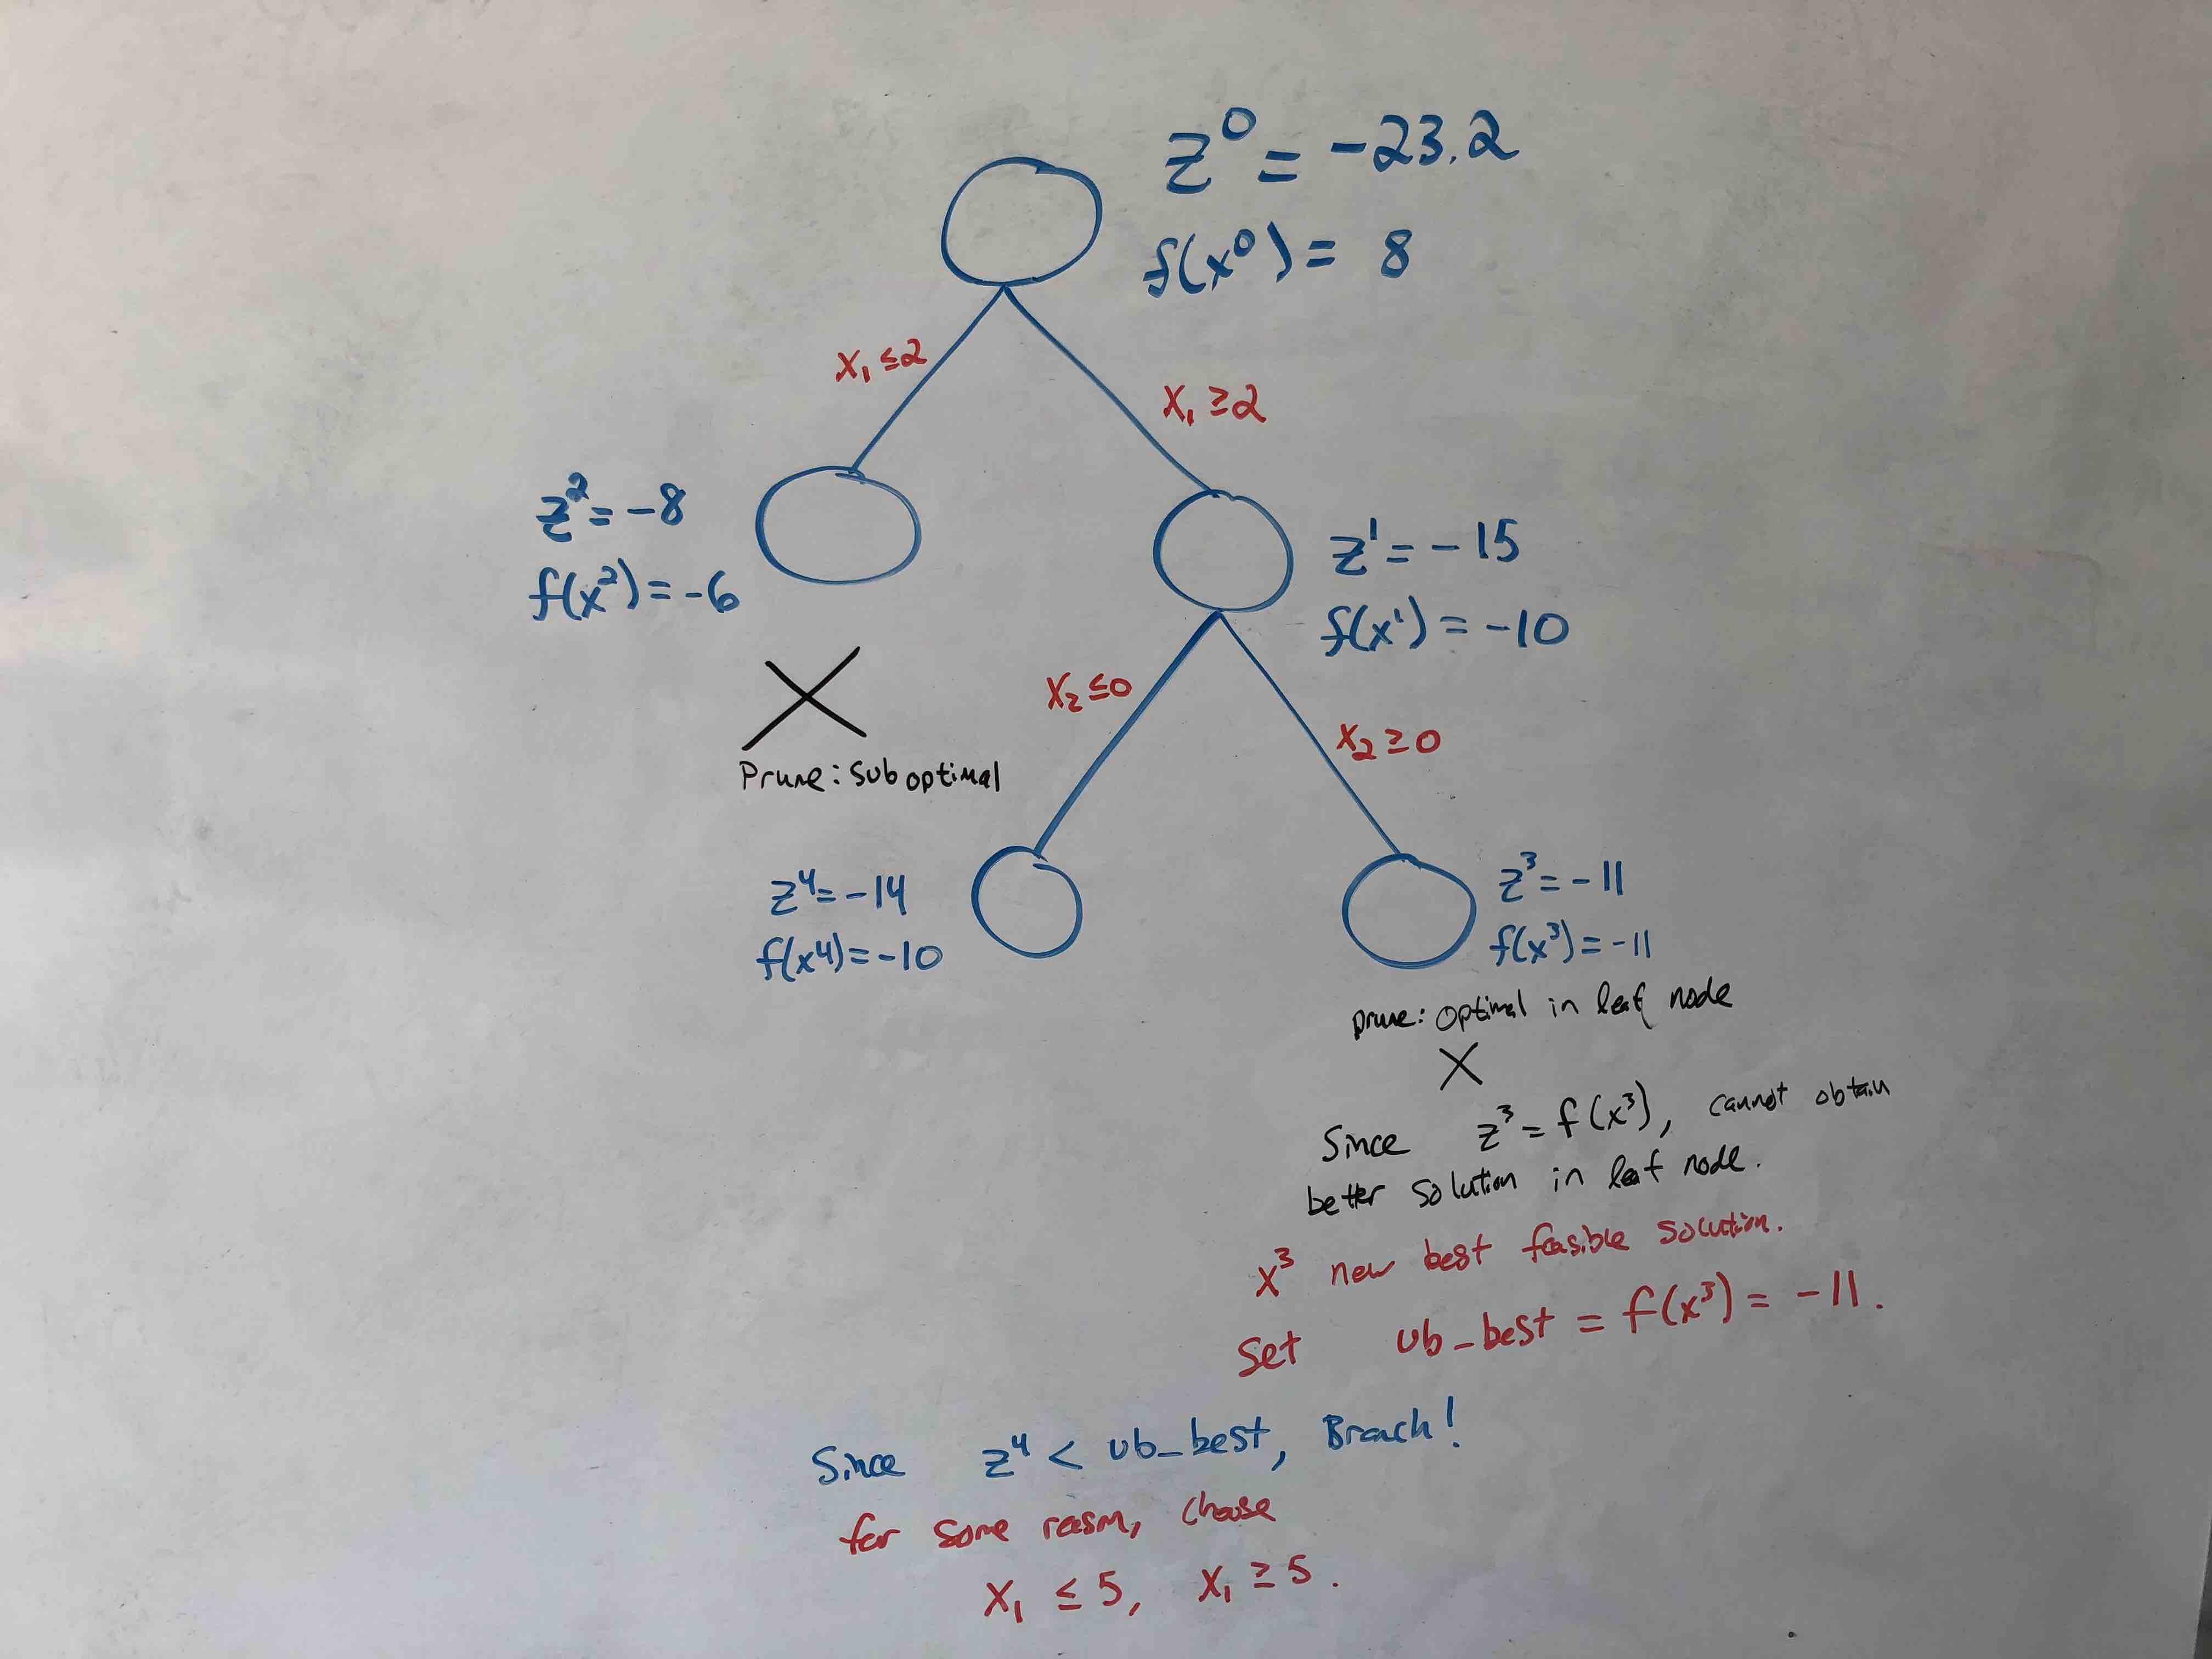 z⁰ = -23.2
f(x⁰) = 8
x₁ ≤ 2
x₁ ≥ 2
z² = -8
f(x²) = -6
z¹ = -15
f(x¹) = -10
Prune: Suboptimal
x₂ ≤ 0
x₂ ≥ 0
z⁴ = -14
f(x⁴) = -10
z³ = -11
f(x³) = -11
prune: optimal in leaf node
Since z³ = f(x³), cannot obtain
better solution in leaf node.
x³ new best feasible solution.
Set ub_best = f(x³) = -11.
Since z⁴ < ub_best, Branch!
for some reason, choose
x₁ ≤ 5, x₁ ≥ 5.